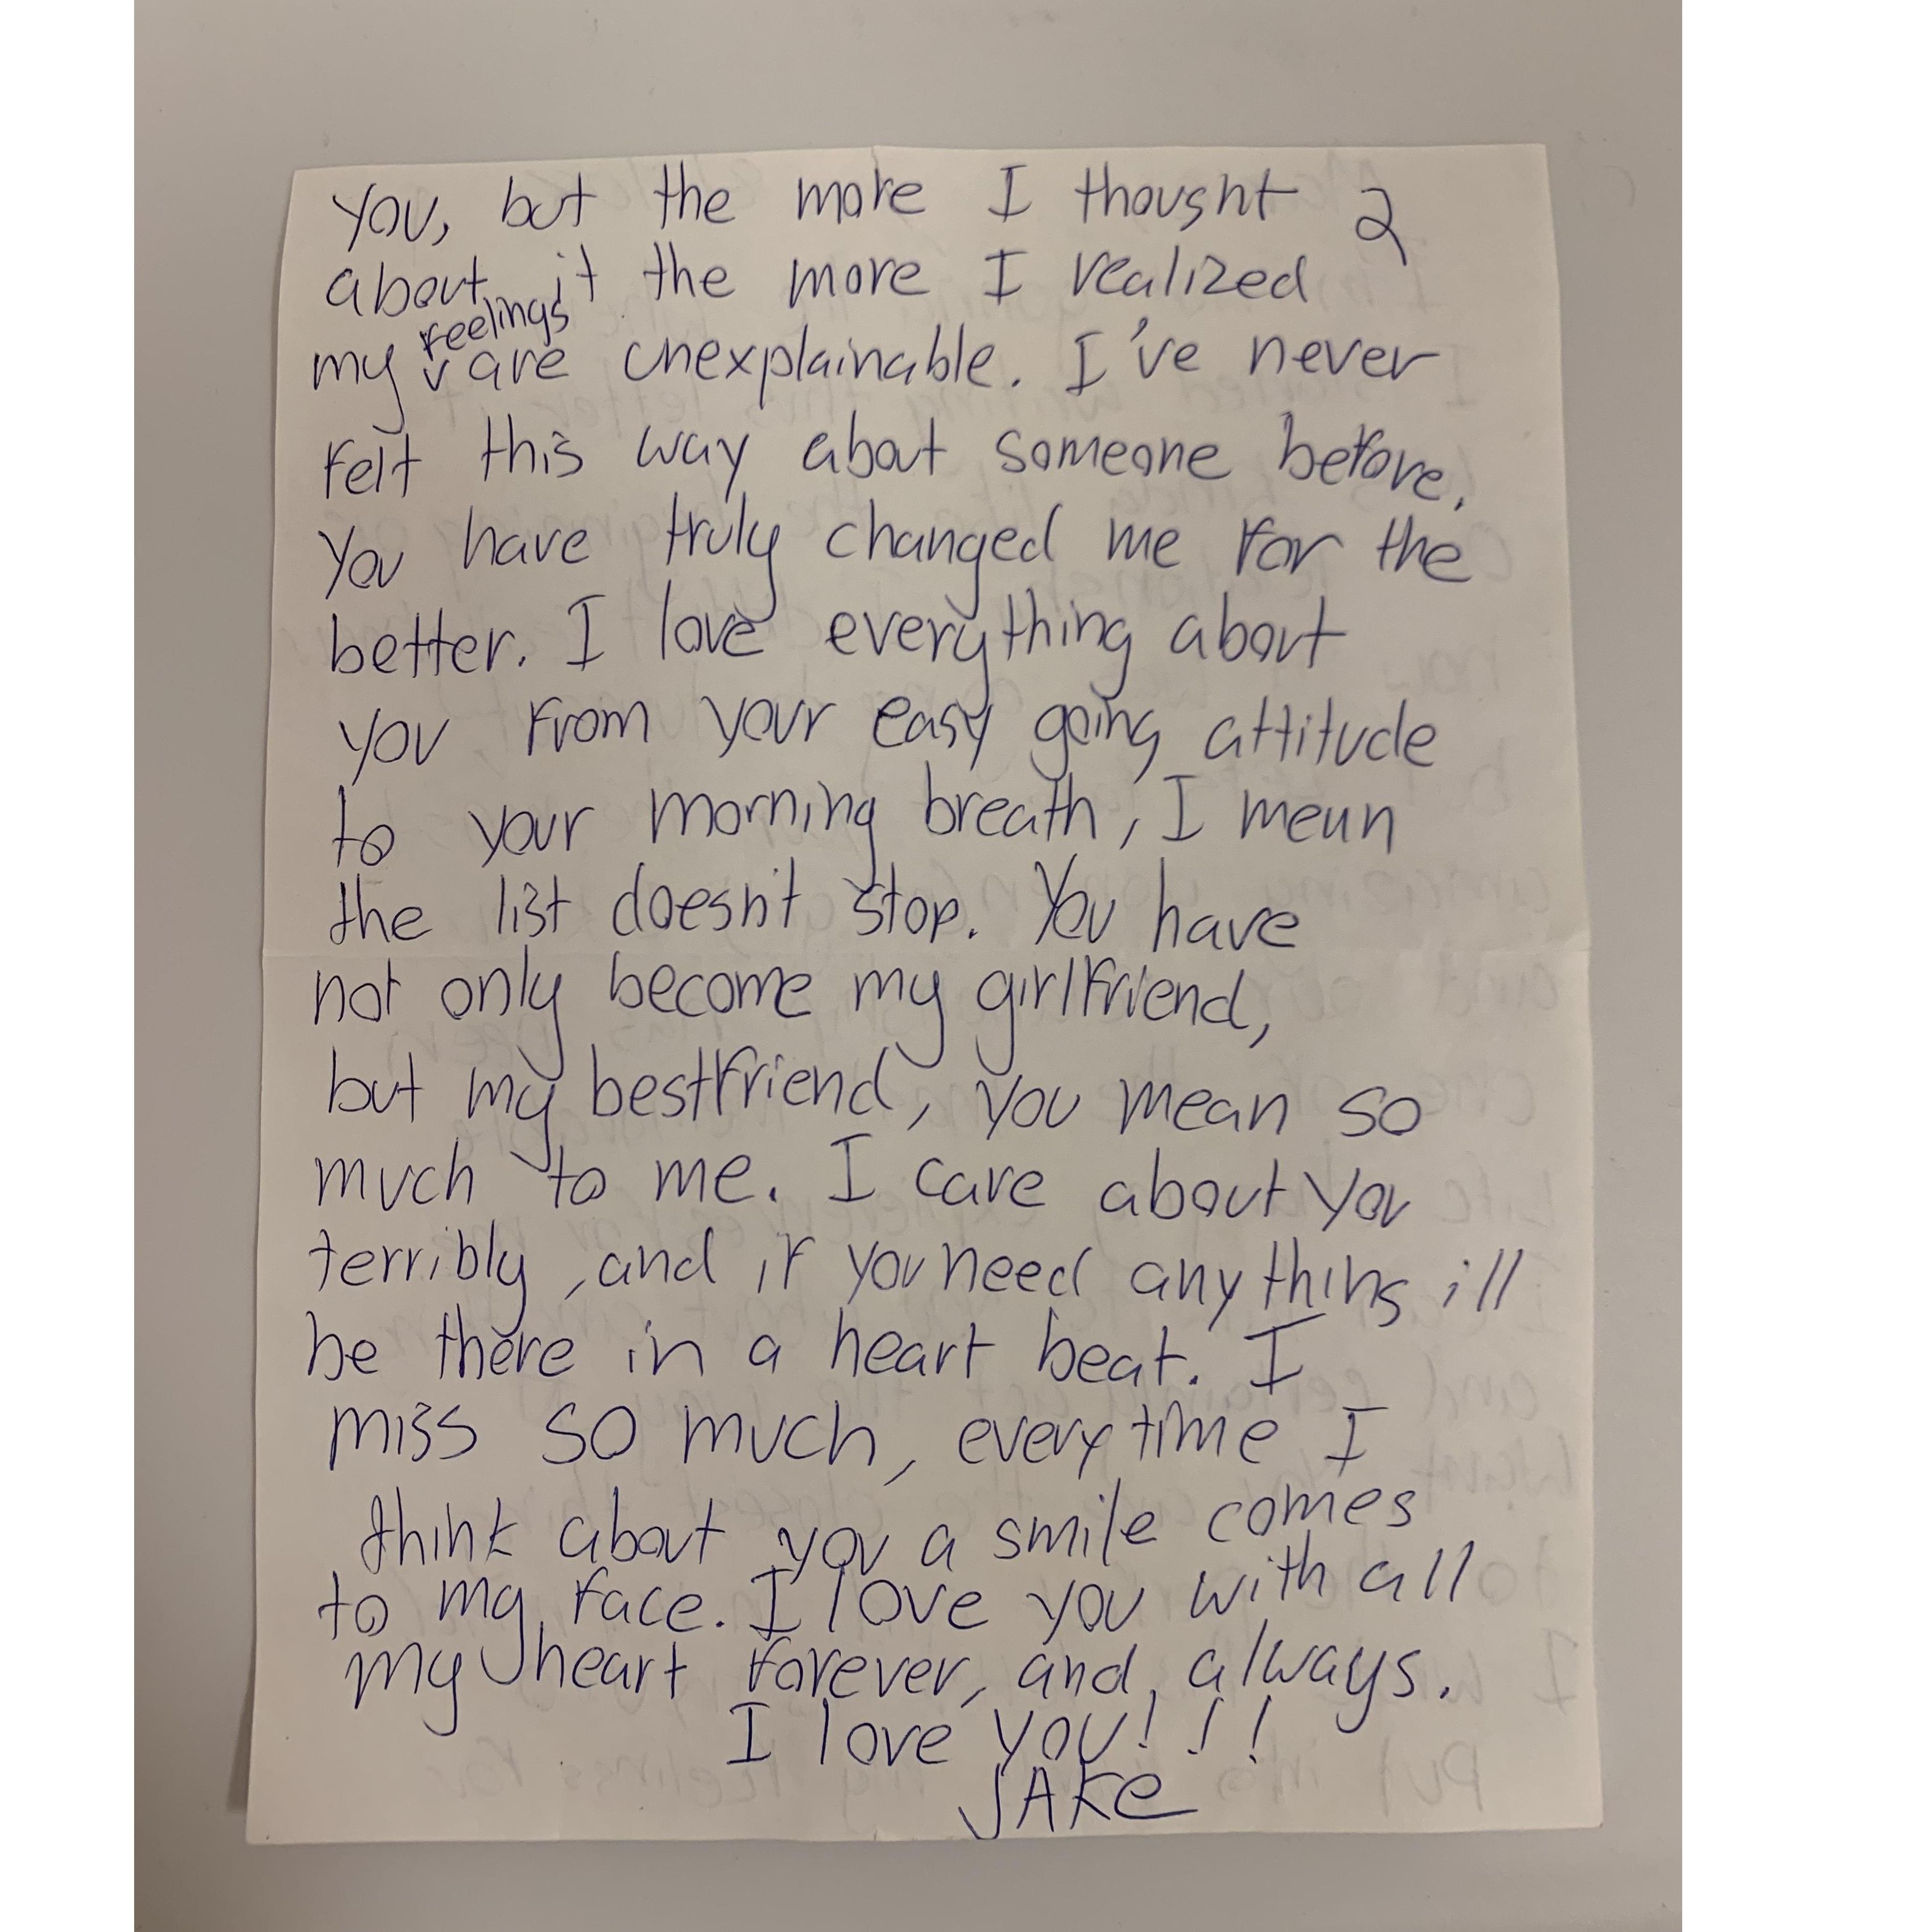 you, but the more I thought 2
about it the more I realized
my feelings are unexplainable. I've never
felt this way about someone before.
You have truly changed me for the
better. I love everything about
you from your easy going attitude
to your morning breath, I mean
the list doesn't stop. You have
not only become my girlfriend,
but my bestfriend, you mean so
much to me. I care about you
terribly, and if you need anything ill
be there in a heart beat. I
miss so much, everytime I
think about you a smile comes
to my face. I love you with all
my heart forever, and always.
I love you!!!
JAKe